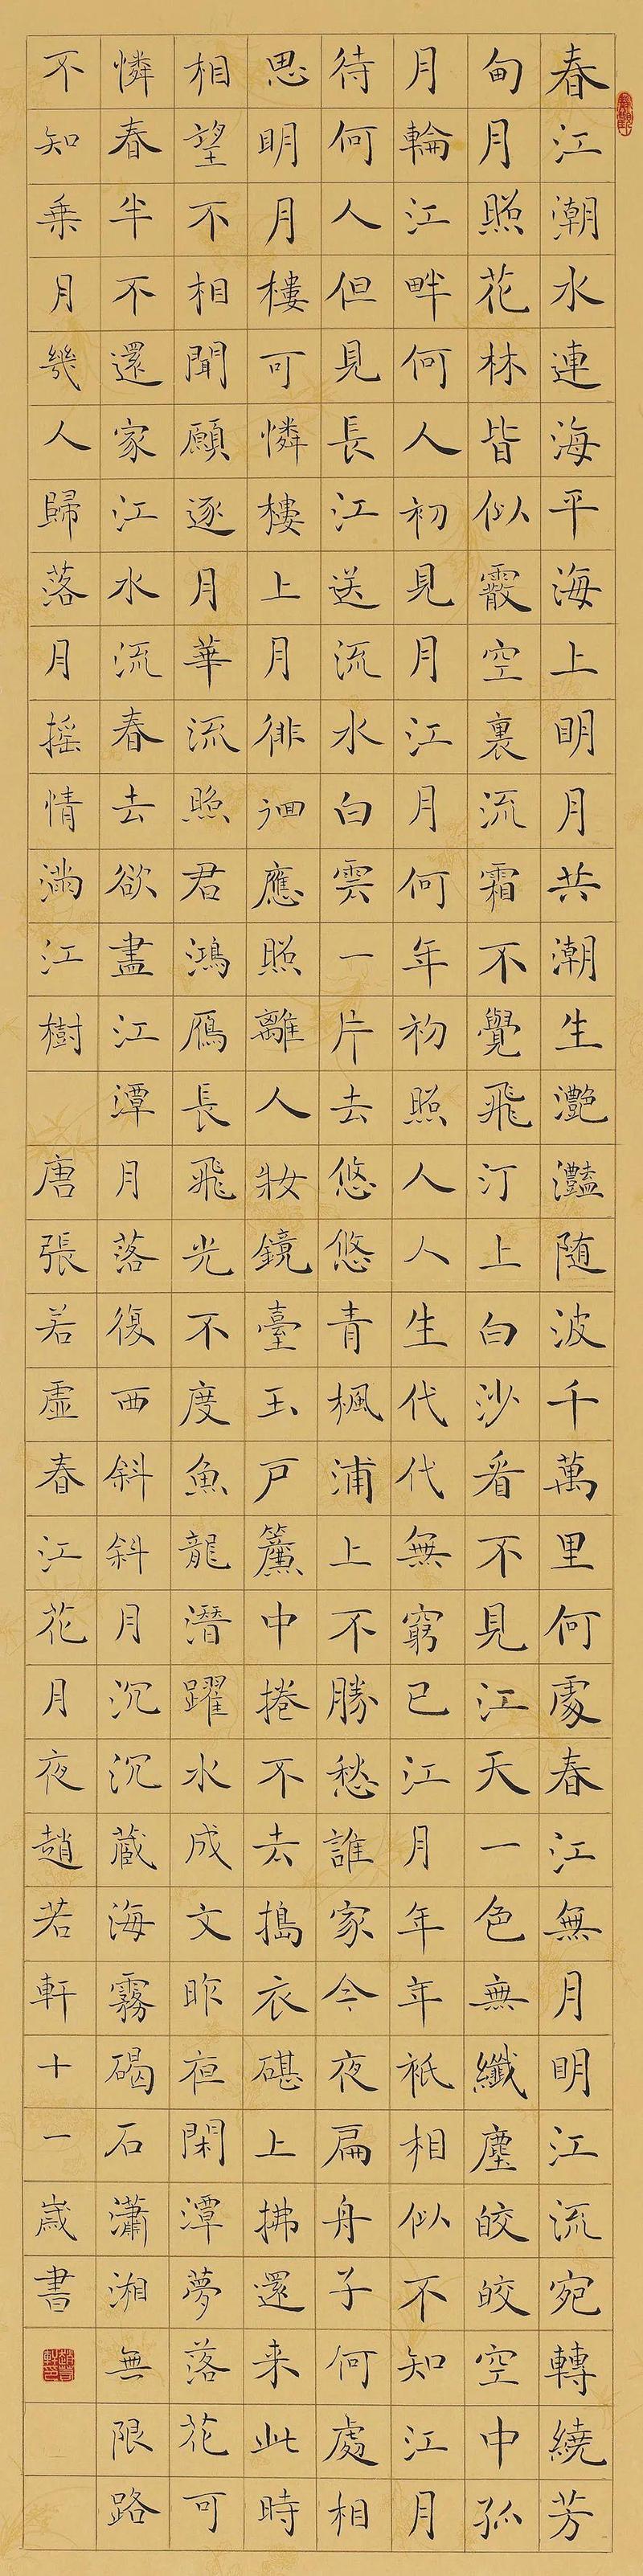 春江潮水連海平海上明月共潮生灔灔随波千萬里何處春江無月明江流宛轉繞芳
甸月照花林皆似霰空裏流霜不覺飛汀上白沙看不見江天一色無纖塵皎皎空中孤
月輪江畔何人初見月江月何年初照人人生代代無窮已江月年年衹相似不知江月
待何人但見長江送流水白雲一片去悠悠青楓浦上不勝愁誰家今夜扁舟子何處相
思明月樓可憐樓上月徘徊應照離人妝鏡臺玉戶簾中捲不去搗衣碪上拂還来此時
相望不相聞願逐月華流照君鴻雁長飛光不度魚龍潛躍水成文昨夜閑潭夢落花可
憐春半不還家江水流春去欲盡江潭月落復西斜斜月沉沉藏海霧碣石瀟湘無限路
不知乘月幾人歸落月摇情滿江樹 唐張若虛春江花月夜趙若軒十一歲書